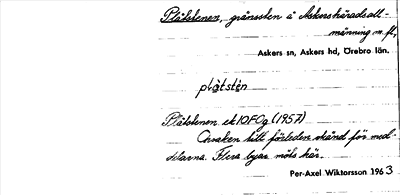 Plåtstenen, gränssten å Askers häradsall-
männing m. fl.,
Askers sn, Askers hd, Örebro län.
plåtstèn
Plåtstenen ek 10F0g (1957)
Orsaken till förleden okänd för med-
delarna. Flera byar möts här.
Per-Axel Wiktorsson 1963